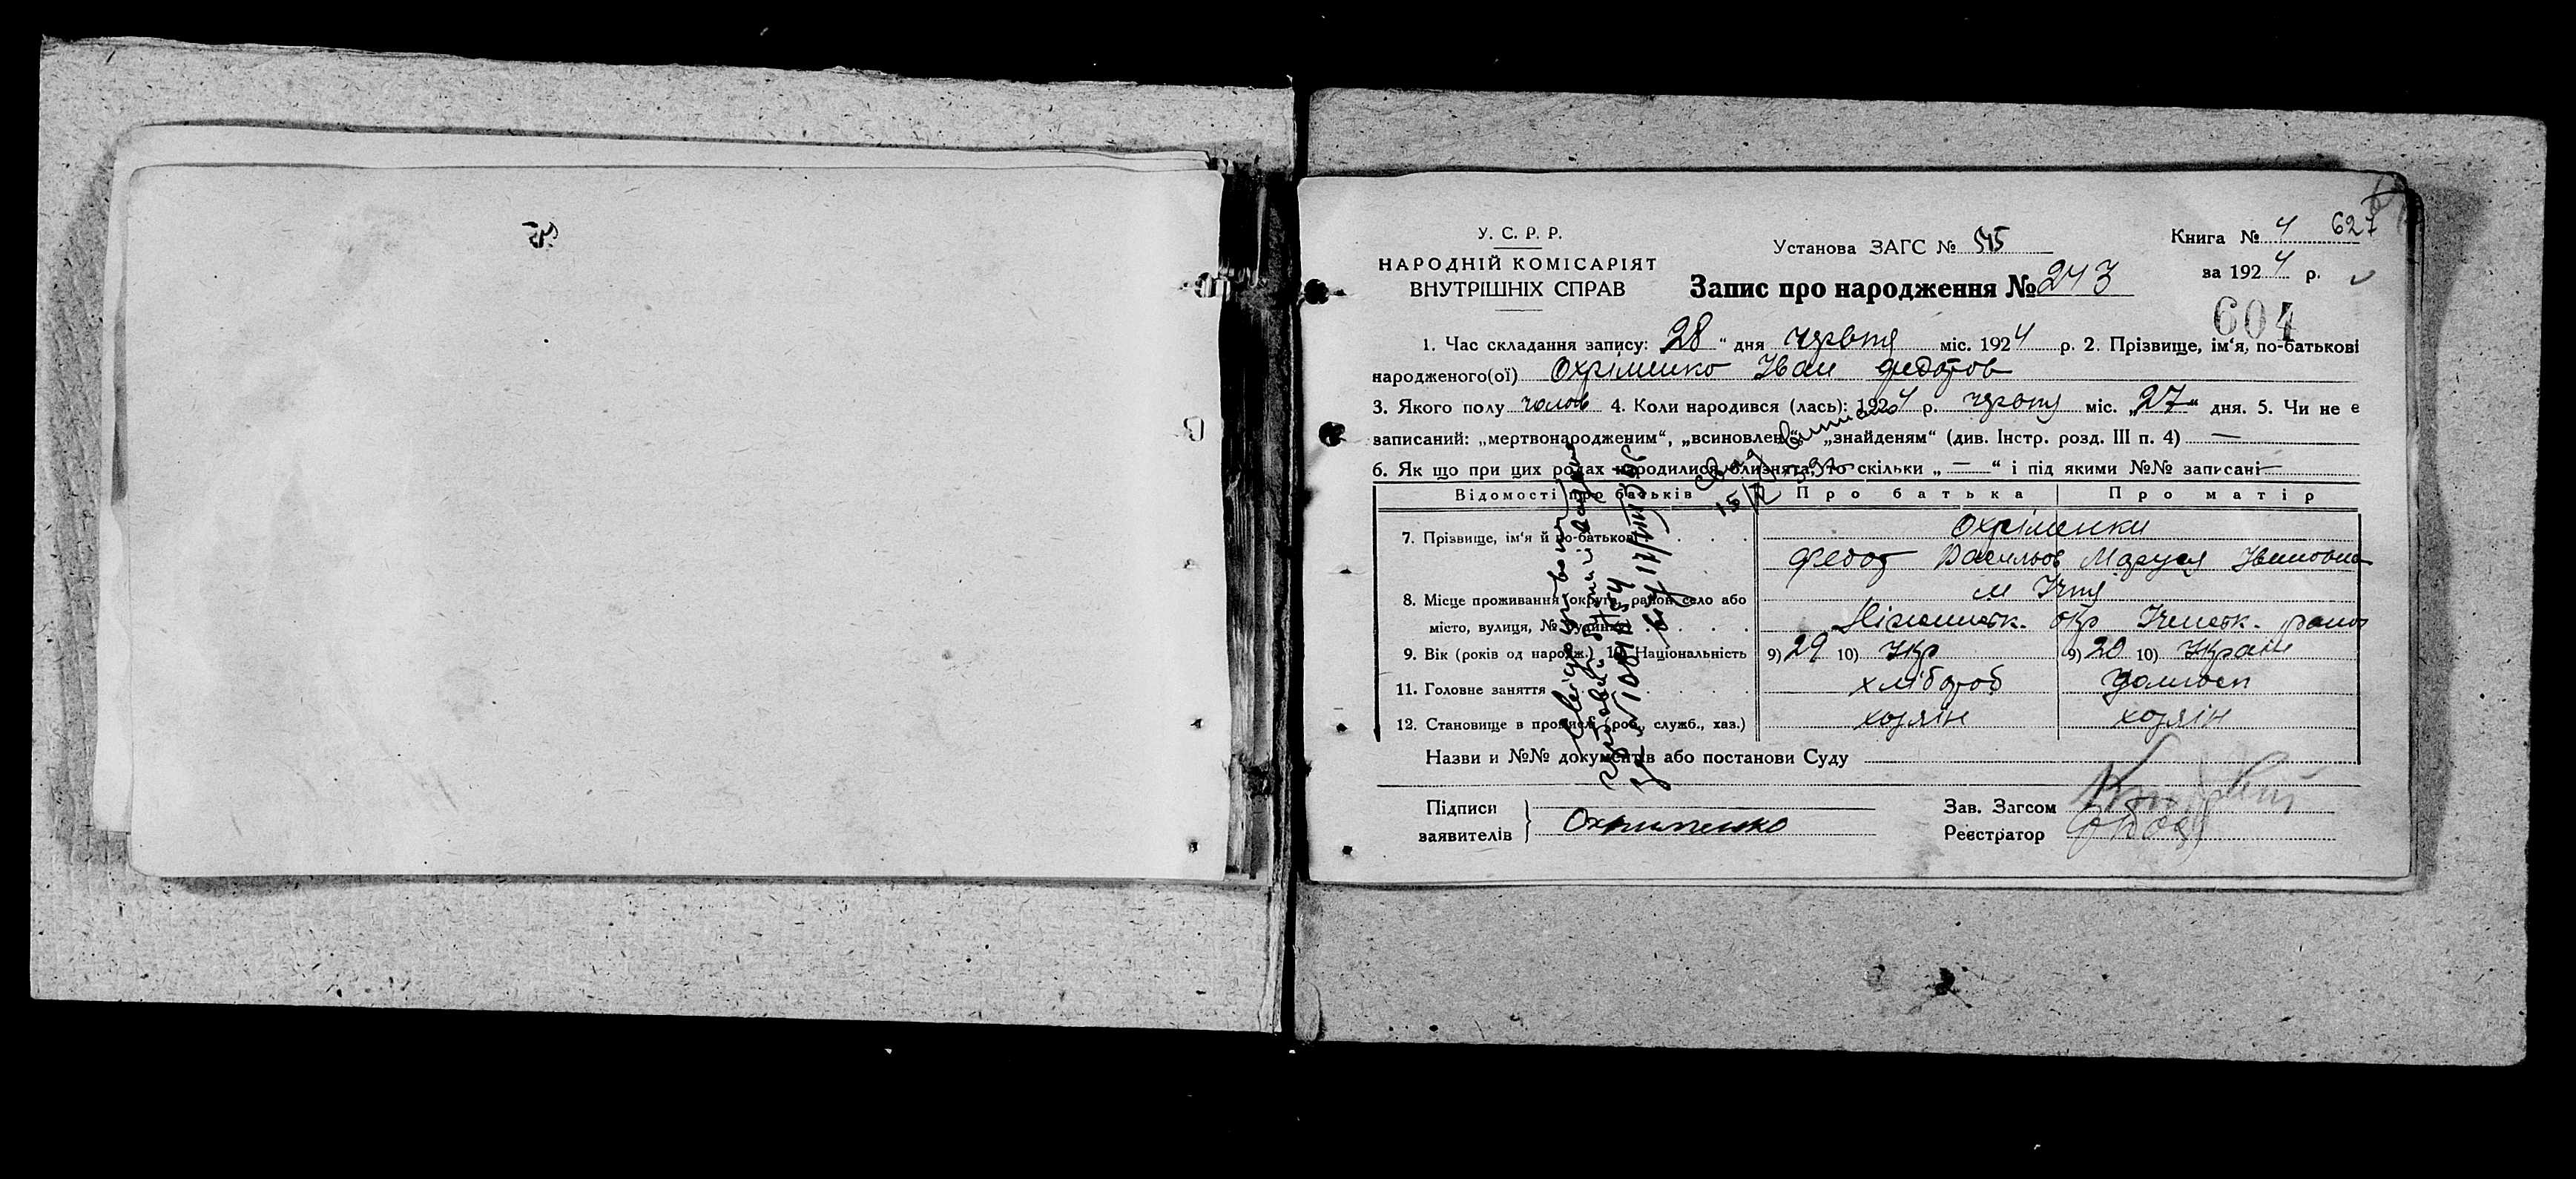 У. С. Р. Р.
НАРОДНІЙ КОМІСАРІЯТ
ВНУТРІШНІХ СПРАВ
Установа ЗАГС №
Книга № 4 627
за 1924 р.
Запис про народження № 243
604
1. Час складання запису: 28 " дня червня міс. 1924 р. 2. Прізвище, ім'я, по-батькові
народженого(ої) Охріменко Іван Федотов
3. Якого полу чолов 4. Коли народився (лась): 1924 р. червня міс. „27" дня. 5. Чи не є
записаний: „мертвонародженим", „всиновлен „знайденям" (див. Інстр. розд. III п. 4) —
6. Як що при цих родах народилися близнята, то скільки „ — " і під якими №№ записані —
Відомості про батьків Про батька Про матір
7. Прізвище, ім'я й по-батькові Охріменки
Федот Васильов Маруся Івановна
8. Місце проживання округа, район село або м Ічня
місто, вулиця, № Ніженськ. окр Іченськ. район
9. Вік (років од народж.) 10. Національність 9) 29 10) Укр 9) 20 10) Україн
11. Головне заняття хлібороб домгосп
12. Становище в промислі (роб., служб., хаз.) хозяін хозяін
Назви и №№ документів або постанови Суду
Підписи
заявителів } Охрименко
Зав. Загсом
Реєстратор